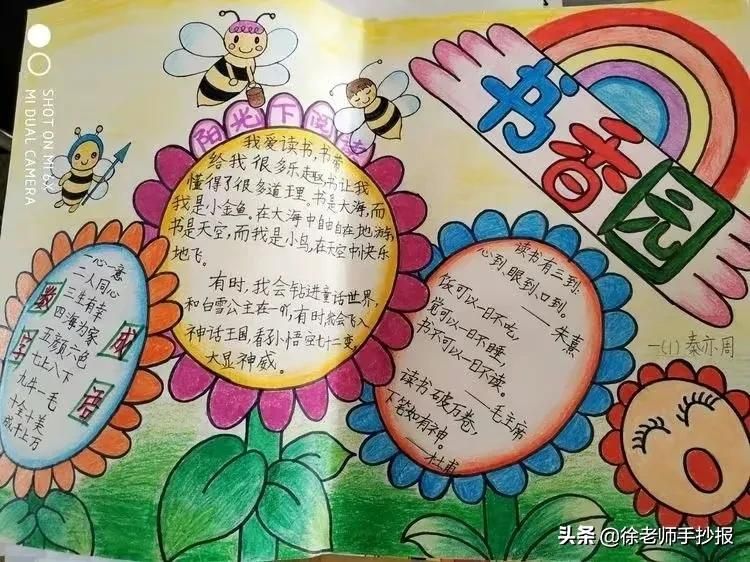 SHOT ON MI 6X
MI DUAL CAMERA
阳光下阅读
我爱读书,书带
给我很多乐趣,书让我
懂得了很多道理。书是大海,而
我是小金鱼。在大海中自由自在地游,
书是天空,而我是小鸟,在天空中快乐
地飞。
有时,我会钻进童话世界,
和白雪公主在一听,有时我会飞入
神话王国,看孙悟空七十二变,
大显神威。
书香园
读书有三到:
心到,眼到,口到。
——朱熹
饭可以一日不吃,
觉可以一日不睡,
书不可以一日不读。
——毛主席
读书破万卷,
下笔如有神。
——杜甫
一(1) 秦亦周
数字成语
一心一意
二人同心
三生有幸
四海为家
五颜六色
七上八下
九牛一毛
十全十美
成千上万
头条 @徐老师手抄报